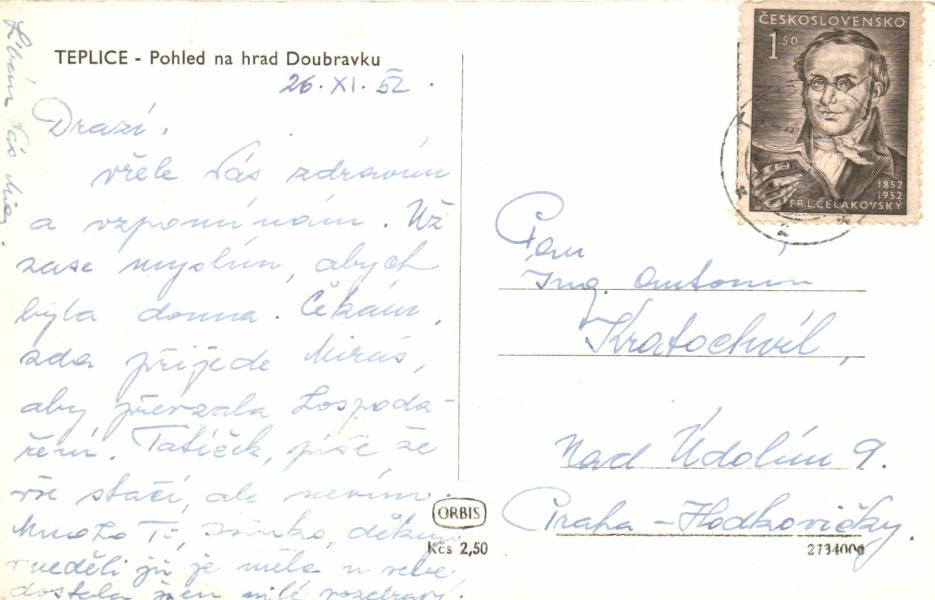 TEPLICE - Pohled na hrad Doubravku
26. XI. 52.
Drazí,
vřele Vás zdravím
a vzpomínám. Už
zase myslím, abych
byla doma. Čekám,
zda přijede
aby převzala hospoda-
ření. Tatíček, píše že
vše stačí, ale nevím.
Mnoho děkuji
v neděli již je měla u sebe
dostala milé pozdravy.
Líbám Vás
ČESKOSLOVENSKO
1.50
1852
1952
FR.L.ČELAKOVSKÝ
Pan
Ing. Antonín
Kratochvíl,
Nad Údolím 9.
Praha - Hodkovičky.
ORBIS
Kčs 2,50
2734000